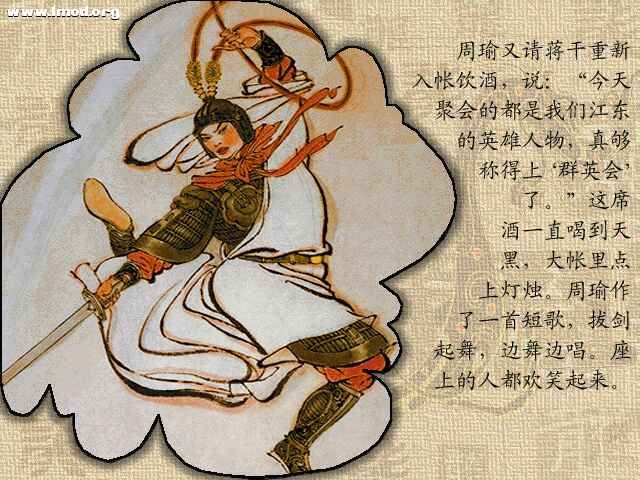 www.1mod.org
周瑜又请蒋干重新
入帐饮酒，说：“今天
聚会的都是我们江东
的英雄人物，真够
称得上‘群英会’
了。”这席
酒一直喝到天
黑，大帐里点
上灯烛。周瑜作
了一首短歌，拔剑
起舞，边舞边唱。座
上的人都欢笑起来。